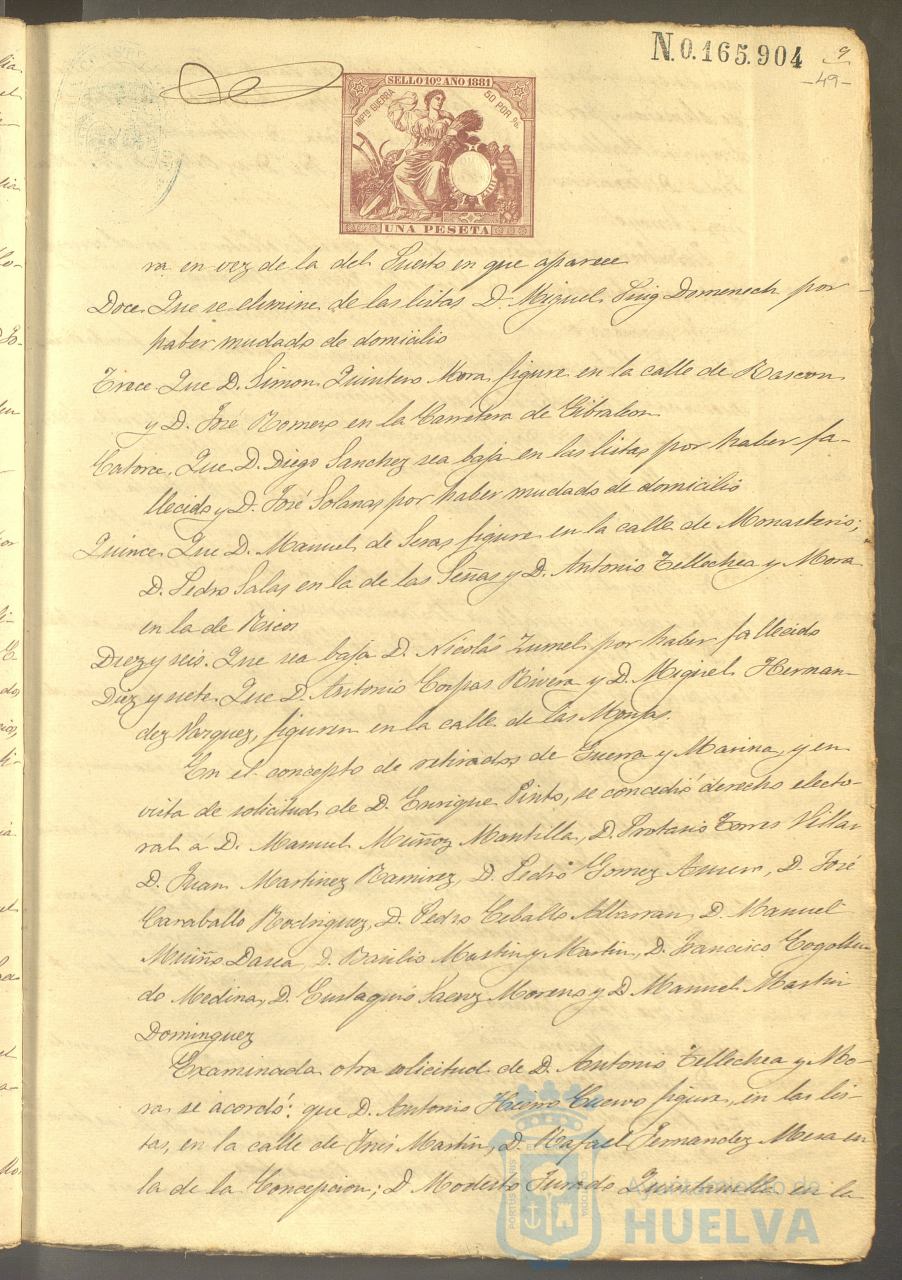 N.0.165.904
9
-49-
SELLO 10º AÑO 1881
IMPTO GUERRA 50 POR %
UNA PESETA
ra en vez de la del Puerto en que aparece
Doce. Que se elimine de las listas D. Miguel Puig Domenech por
haber mudado de domicilio
Trece. Que D. Simon Quintero Mora, figure en la calle de Rascon
y D. José Romero en la Carretera de Gibraleon
Catorce. Que D. Diego Sanchez sea baja en las listas por haber fa-
llecido y D. José Solanas por haber mudado de domicilio
Quince. Que D. Manuel de Seras figure en la calle de Monasterio;
D. Pedro Salas en la de las Señas y D. Antonio Tellechea y Mora
en la de Ricos
Diez y seis. Que sea baja D. Nicolás Zumel por haber fallecido
Diez y siete. Que D. Antonio Corpas Rivera y D. Miguel Hernan-
dez Vazquez, figuren en la calle de las Monjas.
En el concepto de retirados de Guerra y Marina, y en
vista de solicitud de D. Enrique Pinto, se concedió derecho electo-
ral á D. Manuel Muñoz Mantilla, D. Protasio Torres Villar
D. Juan Martinez Ramirez, D. Pedro Gomez D. José
Caraballo Rodriguez, D. Pedro Ceballo Albarran, D. Manuel
Muiño D. Basilio Martin y Martin, D. Francisco Cogollu-
do Medina, D. Eustaquio Saenz Moreno y D. Manuel Martin
Dominguez
Examinada otra solicitud de D. Antonio Tellechea y Mo-
ra se acordó: que D. Antonio Cuervo figure, en las lis-
tas, en la calle de Inés Martin, D. Rafael Fernandez Mesa en
la de la Concepcion; D. Modesto Jurado Quintanilla en la
Ayuntamiento de
HUELVA